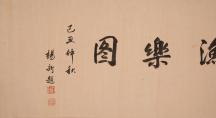 漁樂圖
己亥仲秋
楊新題